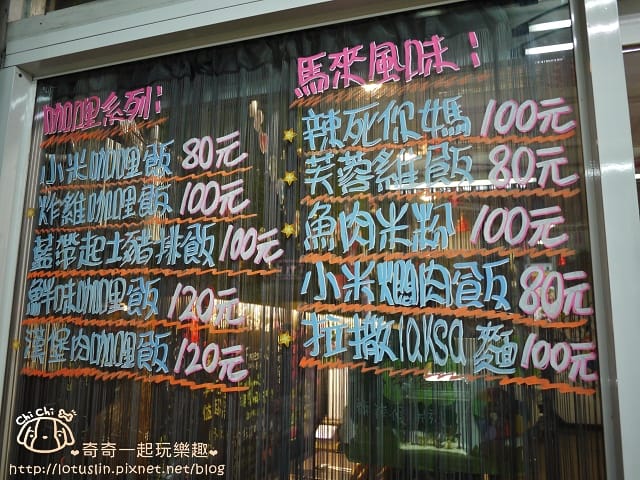 咖哩系列:
小米咖哩飯 80元
炸雞咖哩飯 100元
藍帶起士豬排飯 100元
鮮味咖哩飯 120元
漢堡肉咖哩飯 120元
馬來風味:
辣死你媽 100元
芙蓉雞飯 80元
魚肉米粉 100元
小米焖肉飯 80元
拉撒laksa麵 100元
Chi Chi
奇奇一起玩樂趣
http://lotuslin.pixnet.net/blog